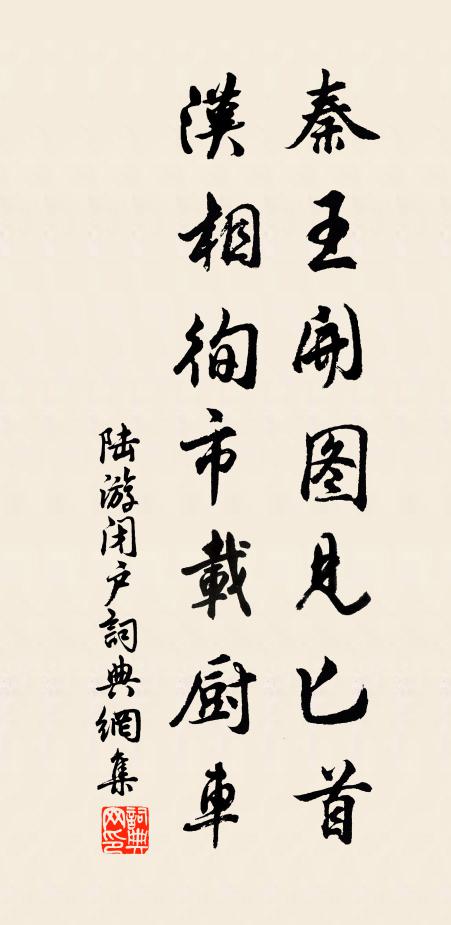 秦王开图見匕首
漢相徇市載厨車
陆游闭户詞典網集
詞典网印